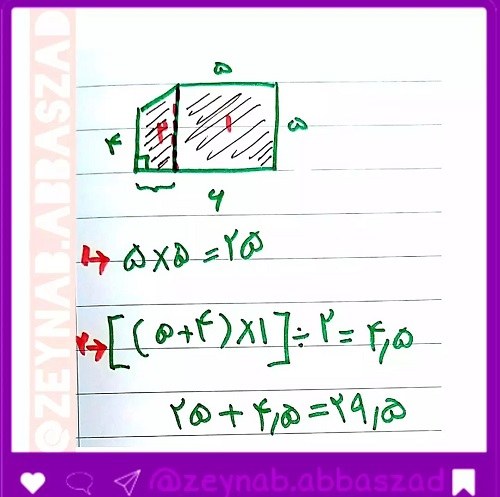 ۵
۴
۲
۱
۵
۶
۱→ ۵×۵=۲۵
۲→ [(۵+۴)×۱]÷۲=۴,۵
۲۵+۴,۵=۲۹,۵
@ZEYNAB.ABBASZAD
@zeynab.abbaszad